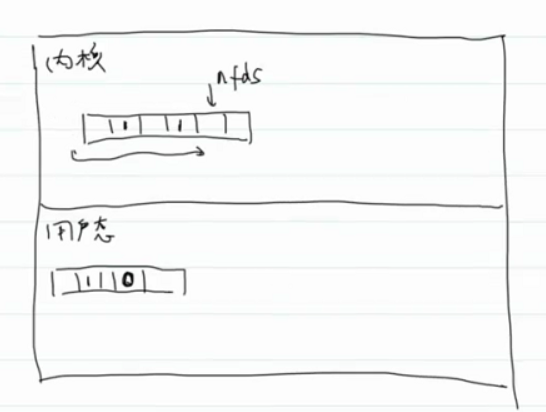 内核
nfds
1 1
用户态
1 0